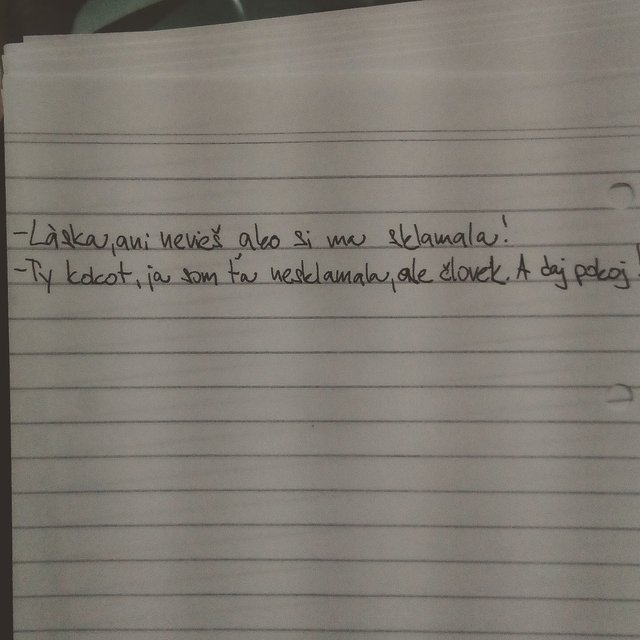 -Láska, ani nevieš ako si ma sklamala!
-Ty kokot, ja som ťa nesklamala, ale človek. A daj pokoj!